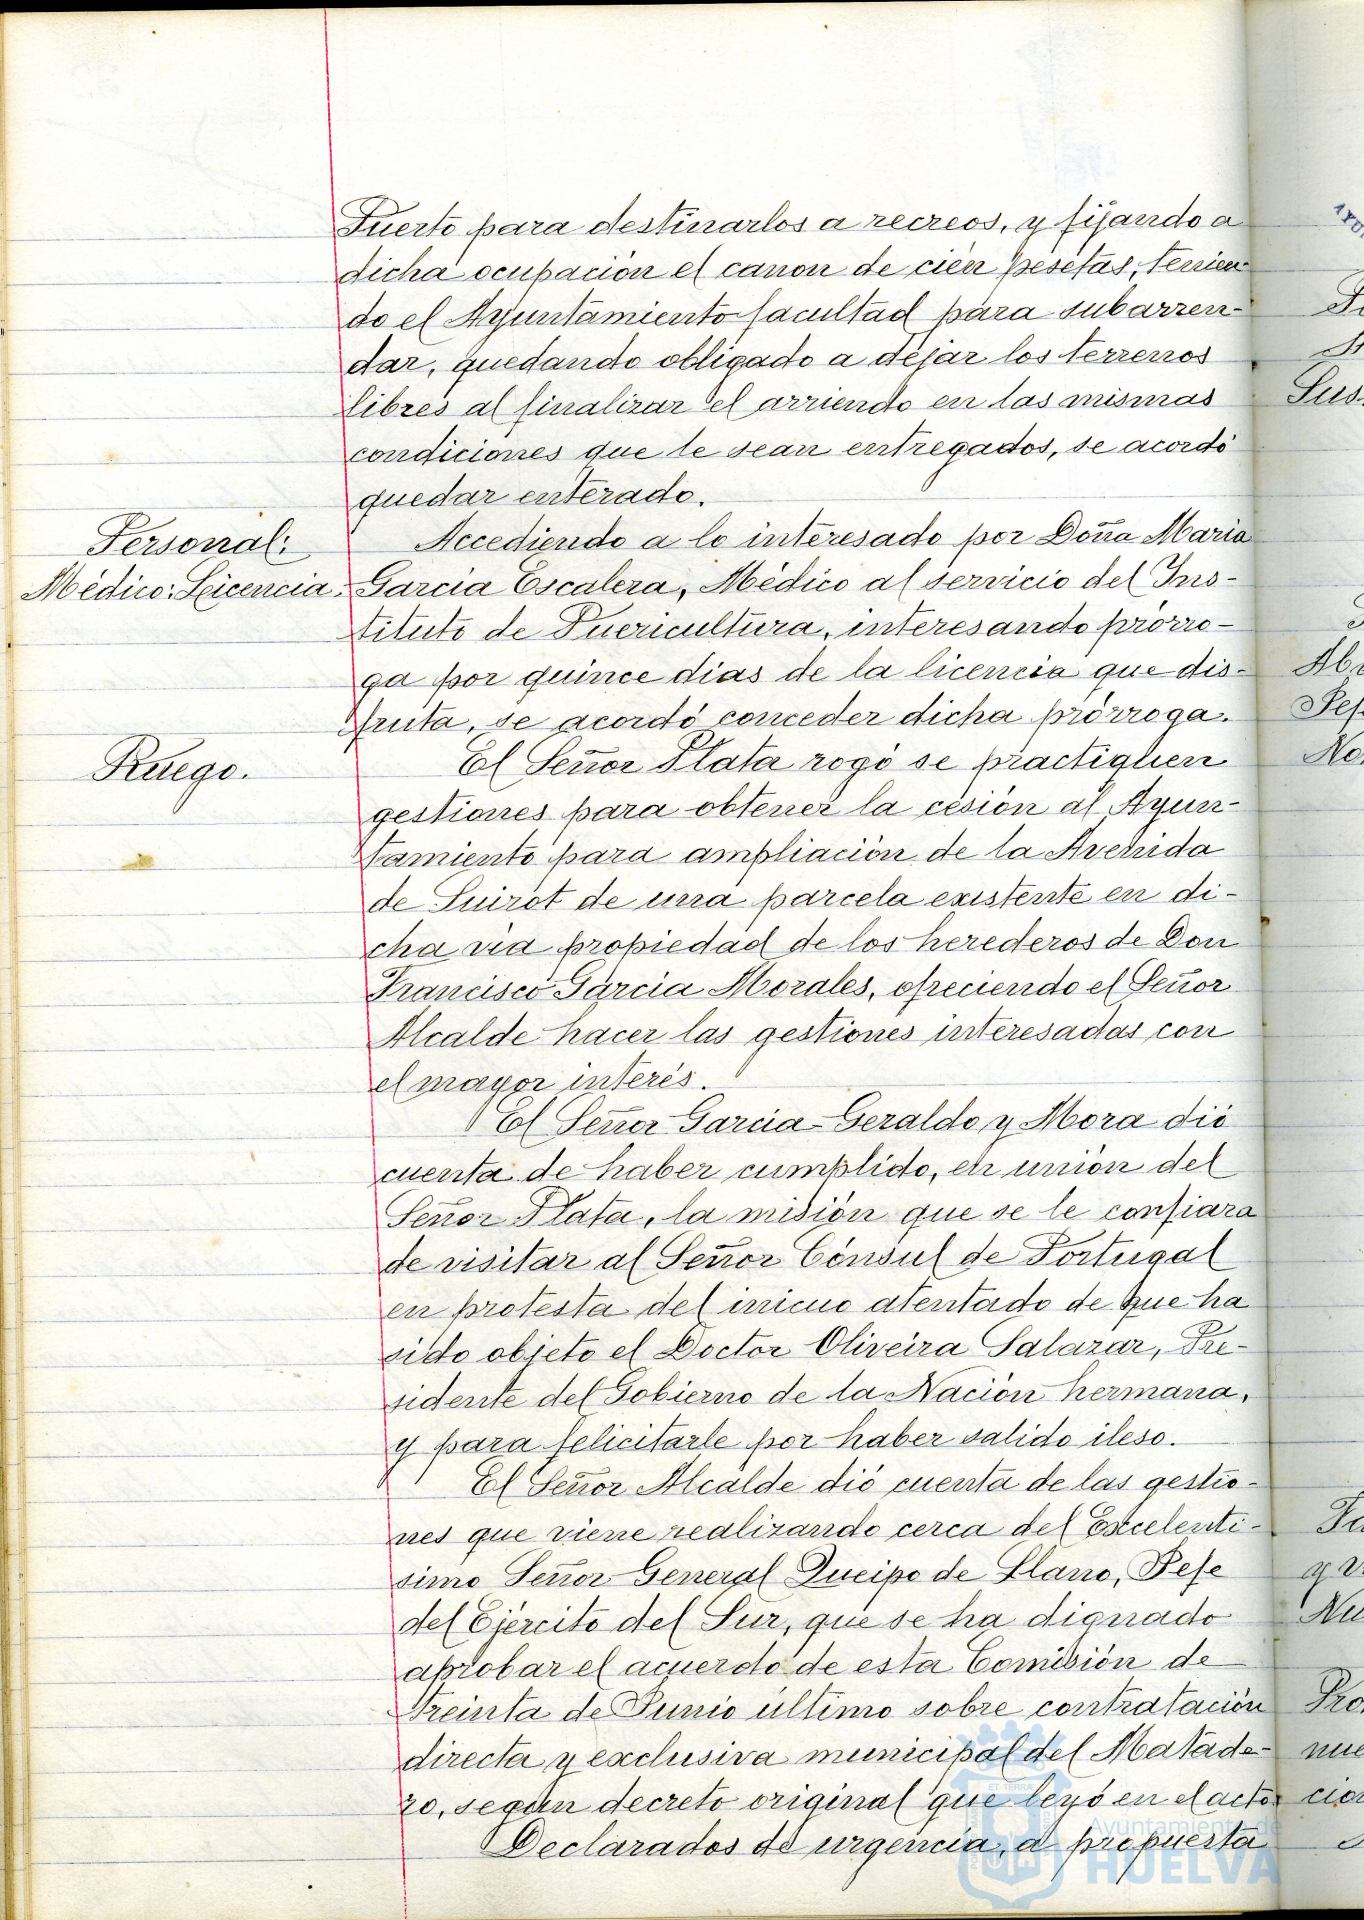 Puerto para destinarlos a recreos, y fijando a
dicha ocupación el canon de cien pesetas, tenien-
do el Ayuntamiento facultad para subarren-
dar, quedando obligado a dejar los terrenos
libres al finalizar el arriendo en las mismas
condiciones que le sean entregados, se acordó
quedar enterado.
Personal:
Médico: Licencia.
Accediendo a lo interesado por Doña Maria
Garcia Escalera, Médico al servicio del Ins-
tituto de Puericultura, interesando prórro-
ga por quince dias de la licencia que dis-
fruta, se acordó conceder dicha prórroga.
Ruego.
El Señor Plata rogó se practiquen
gestiones para obtener la cesión al Ayun-
tamiento para ampliación de la Avenida
de Guirot de una parcela existente en di-
cha via propiedad de los herederos de Don
Francisco Garcia Morales, ofreciendo el Señor
Alcalde hacer las gestiones interesadas con
el mayor interés.
El Señor Garcia-Geraldo y Mora dió
cuenta de haber cumplido, en unión del
Señor Plata, la misión que se le confiara
de visitar al Señor Cónsul de Portugal
en protesta del inicuo atentado de que ha
sido objeto el Doctor Oliveira Salazar, Pre-
sidente del Gobierno de la Nación hermana,
y para felicitarle por haber salido ileso.
El Señor Alcalde dió cuenta de las gestio-
nes que viene realizando cerca del Excelenti-
simo Señor General Queipo de Llano, Jefe
del Ejército del Sur, que se ha dignado
aprobar el acuerdo de esta Comisión de
treinta de Junio último sobre contratación
directa y exclusiva municipal del Matade-
ro, segun decreto original que leyó en el acto.
Declarados de urgencia, a propuesta
Ayuntamiento de
HUELVA